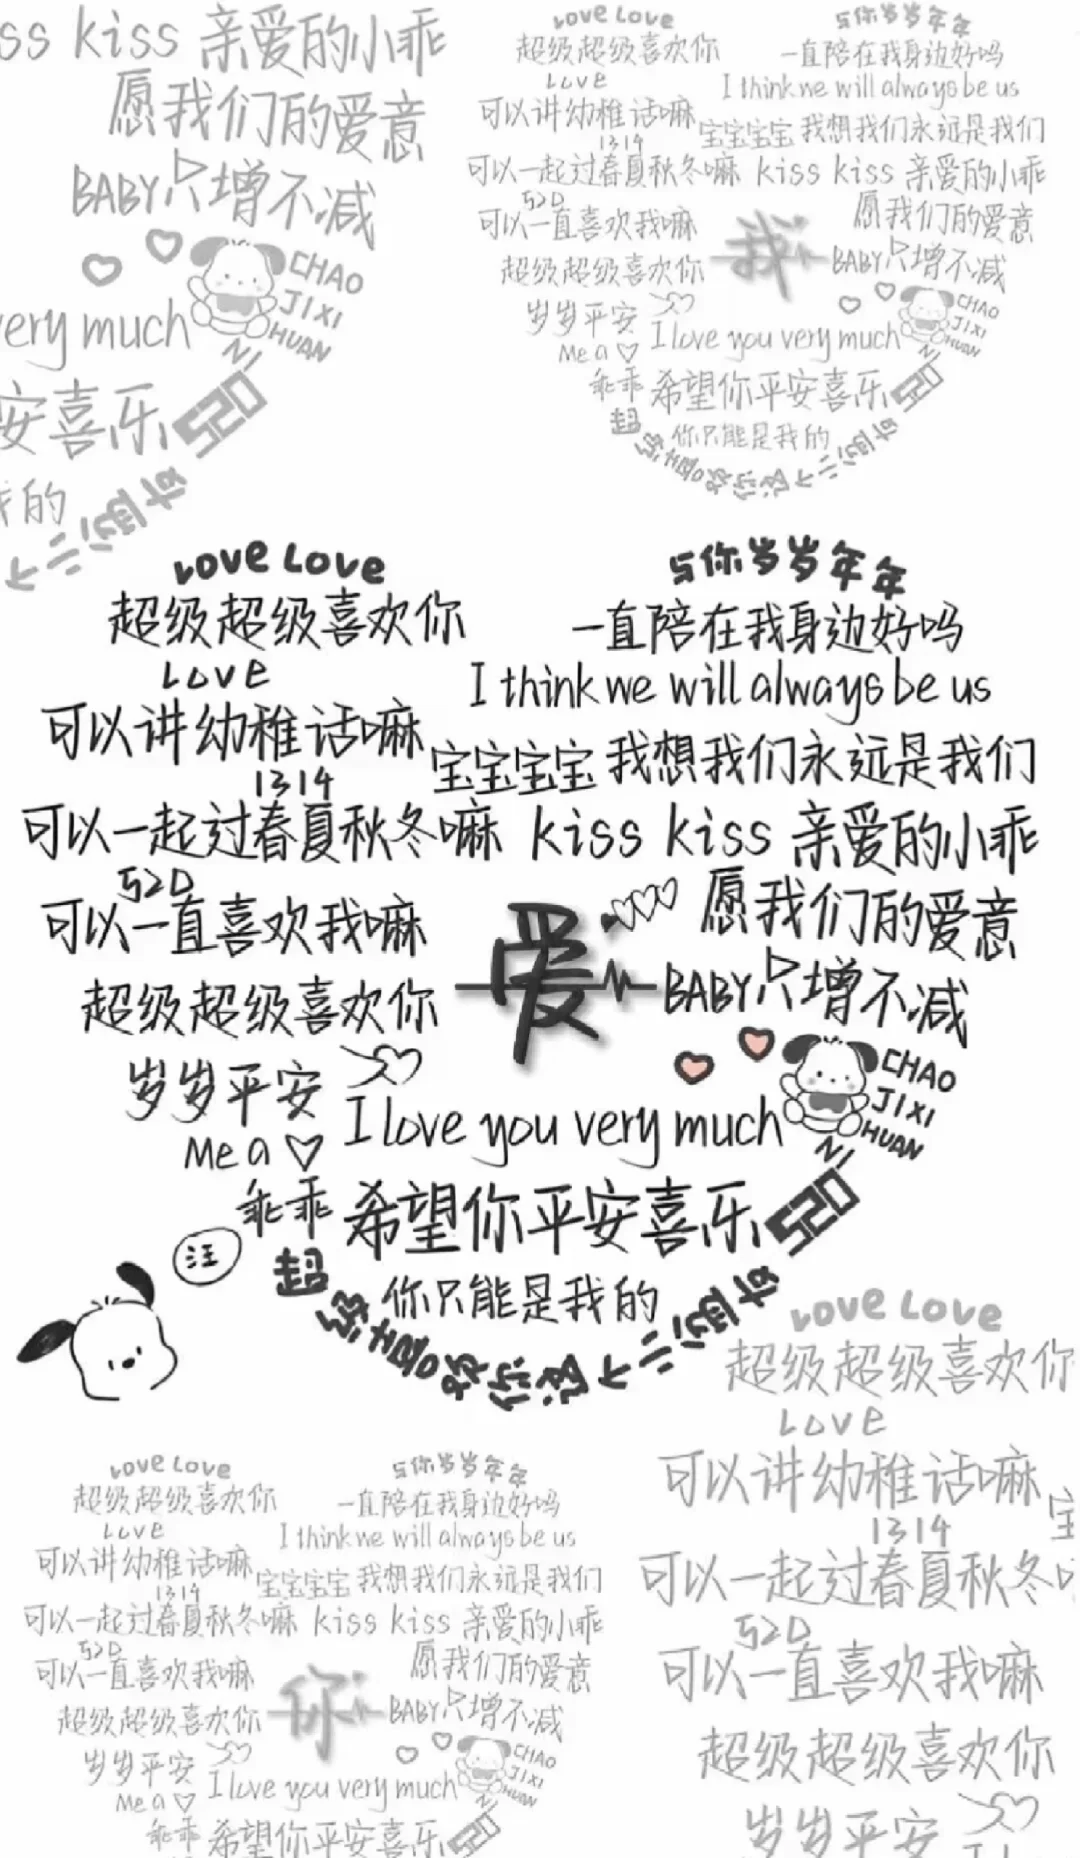 ss kiss 亲爱的小乖
愿我们的爱意
BABY只增不减
CHAO
JIXI
HUAN
NI
very much
安喜乐 520
我的
Love Love
超级超级喜欢你
Love
可以讲幼稚话嘛
1314
可以一起过春夏秋冬嘛
520
可以一直喜欢我嘛
超级超级喜欢你
岁岁平安
Me a
与你岁岁年年
一直陪在我身边好吗
I think we will always be us
宝宝宝宝 我想我们永远是我们
kiss kiss 亲爱的小乖
愿我们的爱意
我
BABY只增不减
CHAO
JIXI
HUAN
NI
I love you very much
乖乖 希望你平安喜乐 520
你只能是我的
Love Love
超级超级喜欢你
Love
可以讲幼稚话嘛
1314
可以一起过春夏秋冬嘛
520
可以一直喜欢我嘛
超级超级喜欢你
岁岁平安
Me a
与你岁岁年年
一直陪在我身边好吗
I think we will always be us
宝宝宝宝 我想我们永远是我们
kiss kiss 亲爱的小乖
愿我们的爱意
爱
BABY只增不减
CHAO
JIXI
HUAN
NI
I love you very much
乖乖 希望你平安喜乐 520
你只能是我的
汪
Love Love
超级超级喜欢你
Love
可以讲幼稚话嘛
1314
可以一起过春夏秋冬
520
可以一直喜欢我嘛
超级超级喜欢你
岁岁平安
Love Love
超级超级喜欢你
Love
可以讲幼稚话嘛
1314
可以一起过春夏秋冬嘛
520
可以一直喜欢我嘛
超级超级喜欢你
岁岁平安
Me a
与你岁岁年年
一直陪在我身边好吗
I think we will always be us
宝宝宝宝 我想我们永远是我们
kiss kiss 亲爱的小乖
愿我们的爱意
你
BABY只增不减
CHAO
JIXI
HUAN
NI
I love you very much
乖乖 希望你平安喜乐 520